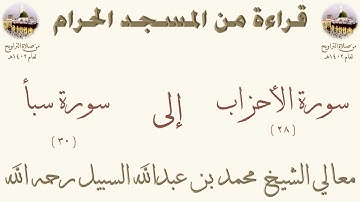 قراءة من المسجد الحرام
من صلاة التراويح
لعام ١٤٠٢هـ
من صلاة التراويح
لعام ١٤٠٢هـ
سورة الأحزاب إلى سورة سبأ
(٢٨) (٣٠)
معالي الشيخ محمد بن عبدالله السبيل رحمه الله